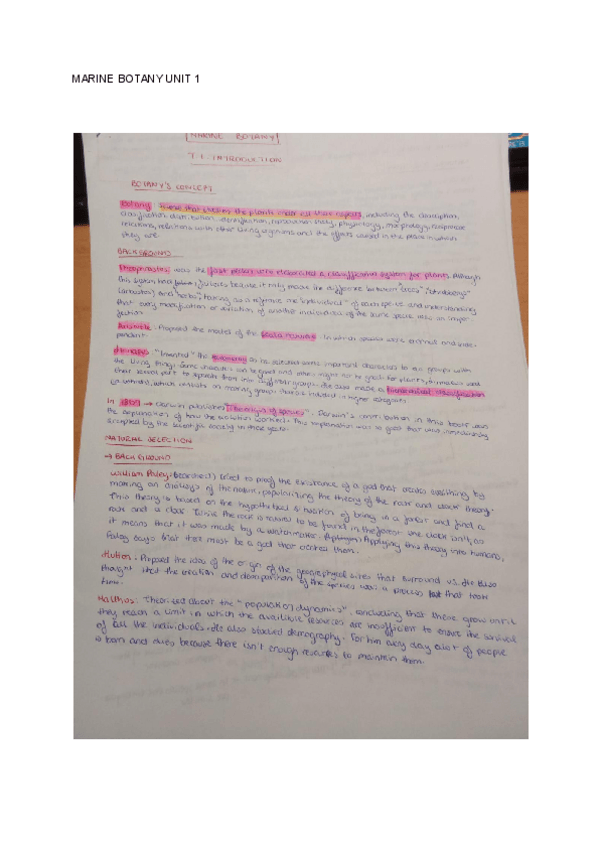 MARINE BOTANY UNIT 1
MARINE BOTANY
T.1. INTRODUCTION
BOTANY'S CONCEPT
Botany: Science that studies the plants under all their aspects, including the description,
classification, distribution, identification, reproduction, physiology, morphology, reciproque
relations, relations with other living organisms and the effects caused in the place in which
they are.
BACKGROUND
Theophrastus was the first person who elaborated a classification system for plants. Although
this system had because it only made the difference between "trees",
(arbustos) and "herbs", taking as a reference one individual of each specie and understanding
that every modification or deviation of another individual of the same specie was an imper-
fection.
Aristotle: Proposed the model of the Scala Naturae. In which were and inde-
pendent.
"Invented" the taxonomy as he selected some important characters to groups with
the living things. Some characters can be good and others might not be good. For plants, he used
their sexual part to separate them into different groups. He also made a hierarchical classification
which consists on making groups that are included in higher categories
In → Darwin publishes "The origin of species". Darwin's contribution in this book was
the explanation of how the evolution worked. This explanation was so good that was immediately
accepted by the scientific society in those years.
NATURAL SELECTION
→ BACKGROUND
William Paley: tried to proof the existance of a god that creates everything by
making an analysis of the nature, popularizing the theory of the rock and clock theory.
This theory is based on the hypothetical situation of being in a forest and find a
rock and a clock. Since the rock is natural to be found in the forest the clock isn't, so
it means that it was made by a watchmaker. Applying this theory into humans,
Paley says that there must be a god that creates them.
Hutton: Proposed the idea of the origin of the geographycal sites that surround us. He also
thought that the creation and disparition of the species was a process that took
time.
Malthus: Theorized about the "population dynamics", concluding that these grow until
they reach a limit in which the available resources are insufficient to ensure the survival
of all the individuals. He also studied demography. For him every day a lot of people
is born and dies because there isn't enough resources to maintain them.